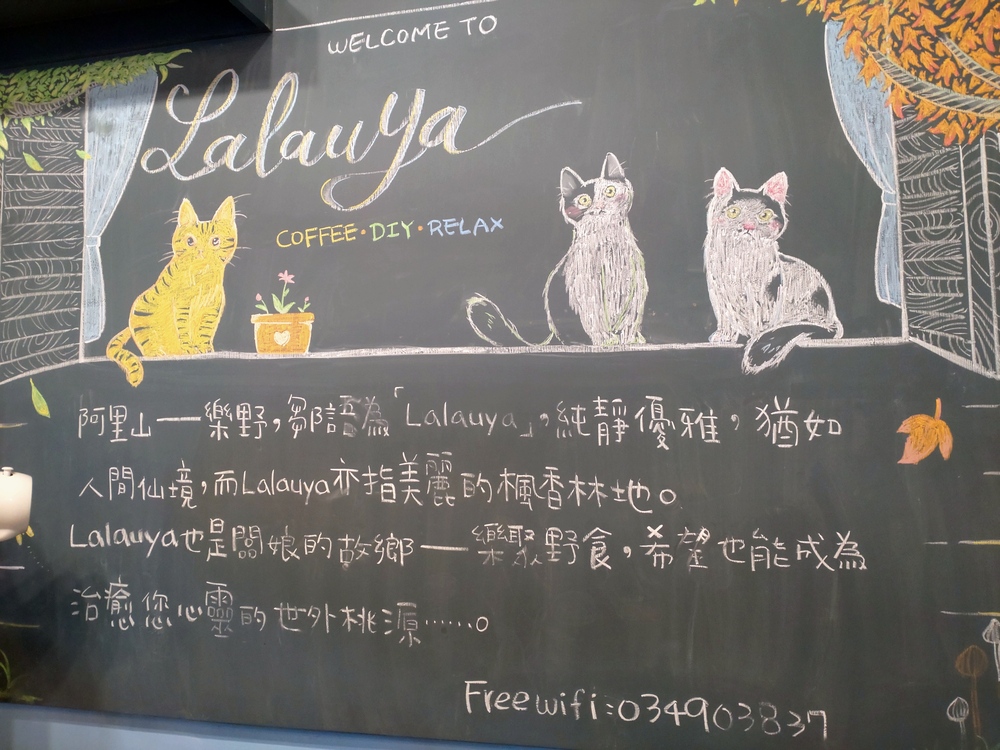 WELCOME TO
Lalauya
COFFEE·DIY·RELAX
阿里山一樂野,鄒語為「Lalauya」,純靜優雅,猶如
人間仙境,而Lalauya亦指美麗的楓香林地。
Lalauya也是闆娘的故鄉一樂聚野食,希望也能成為
治癒您心靈的世外桃源……。
Free wifi:034903837